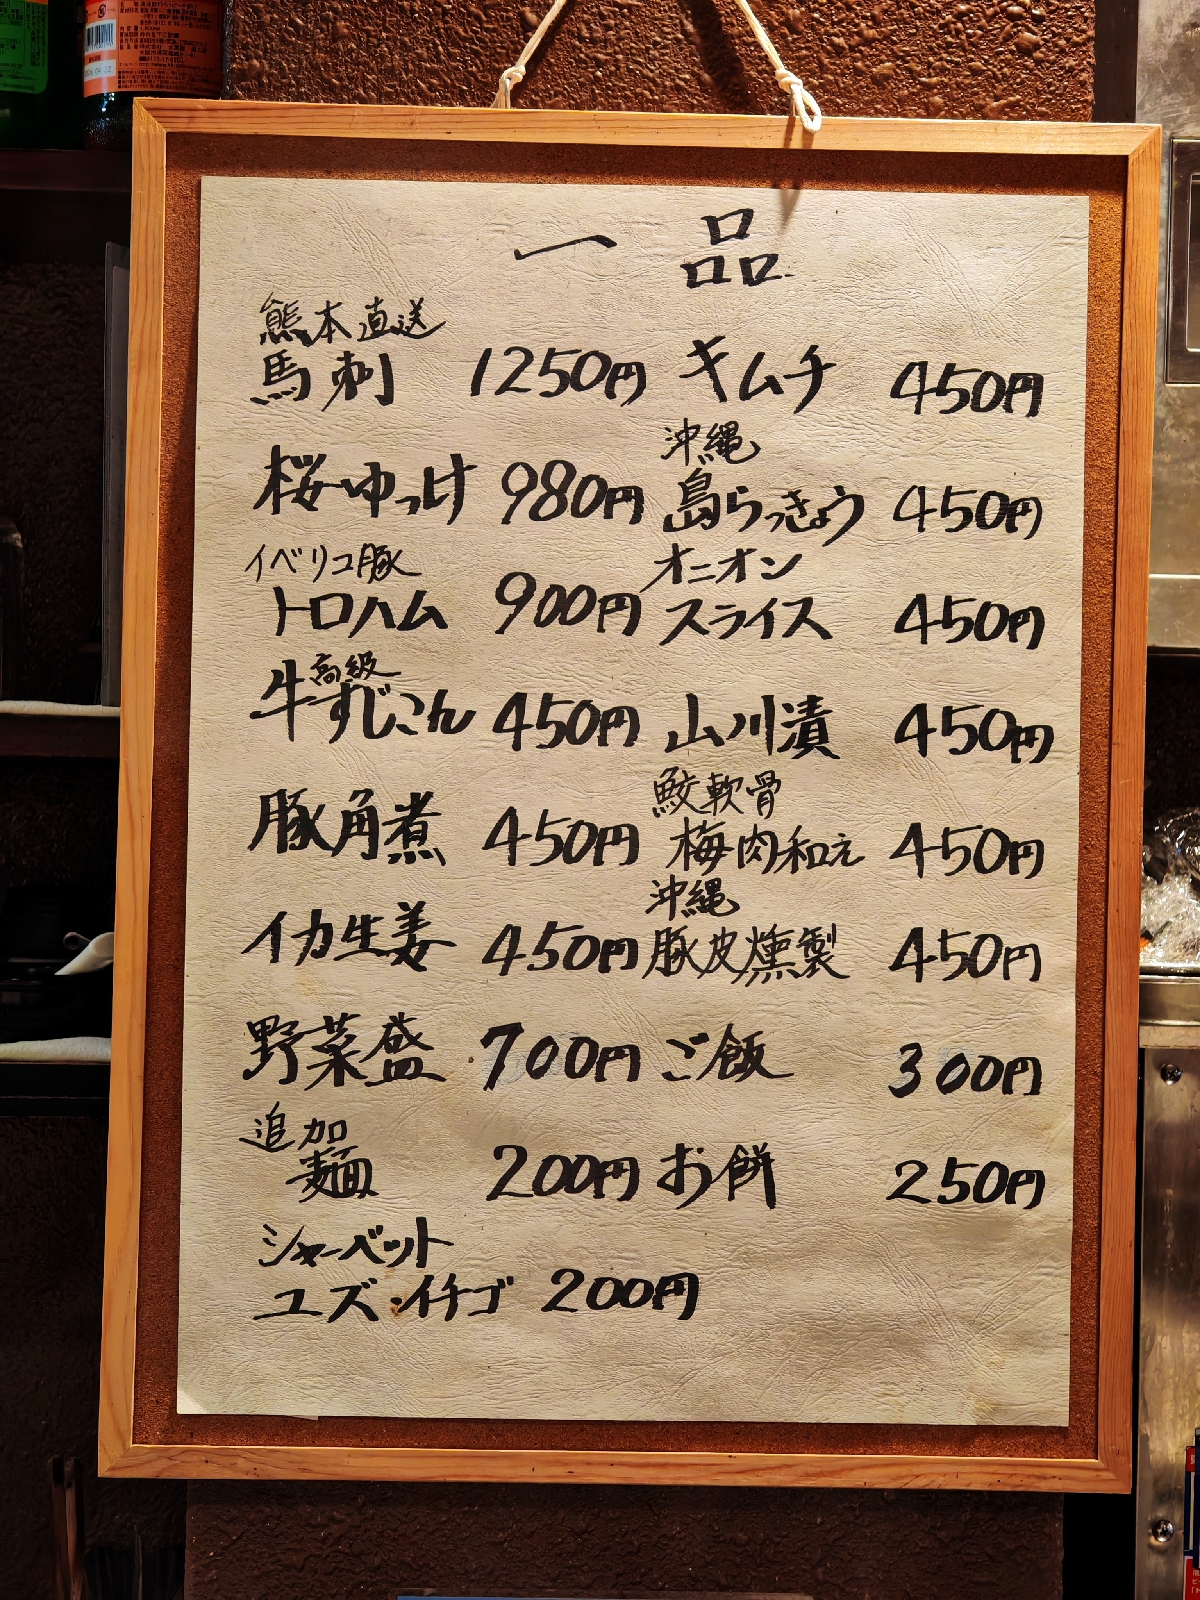 一品
熊本直送
馬刺 1250円
桜ゆっけ 980円
イベリコ豚
トロハム 900円
高級
牛すじこん 450円
豚角煮 450円
イカ生姜 450円
野菜盛 700円
追加
麺 200円
シャーベット
ユズ・イチゴ 200円
キムチ 450円
沖縄
島らっきょう 450円
オニオン
スライス 450円
山川漬 450円
鮫軟骨
梅肉和え 450円
沖縄
豚皮燻製 450円
ご飯 300円
お餅 250円